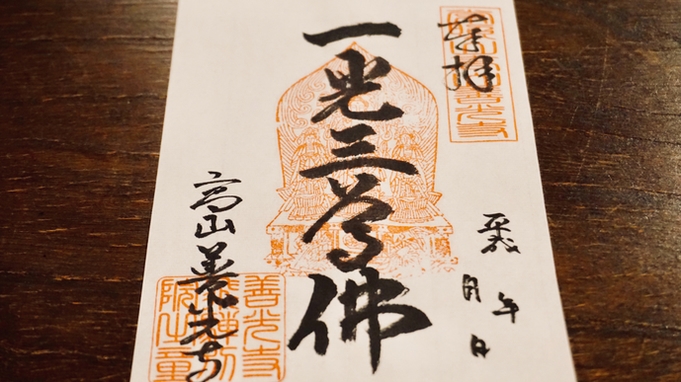 奉拝
平成 年
月 日
一光三尊佛
高山善光寺